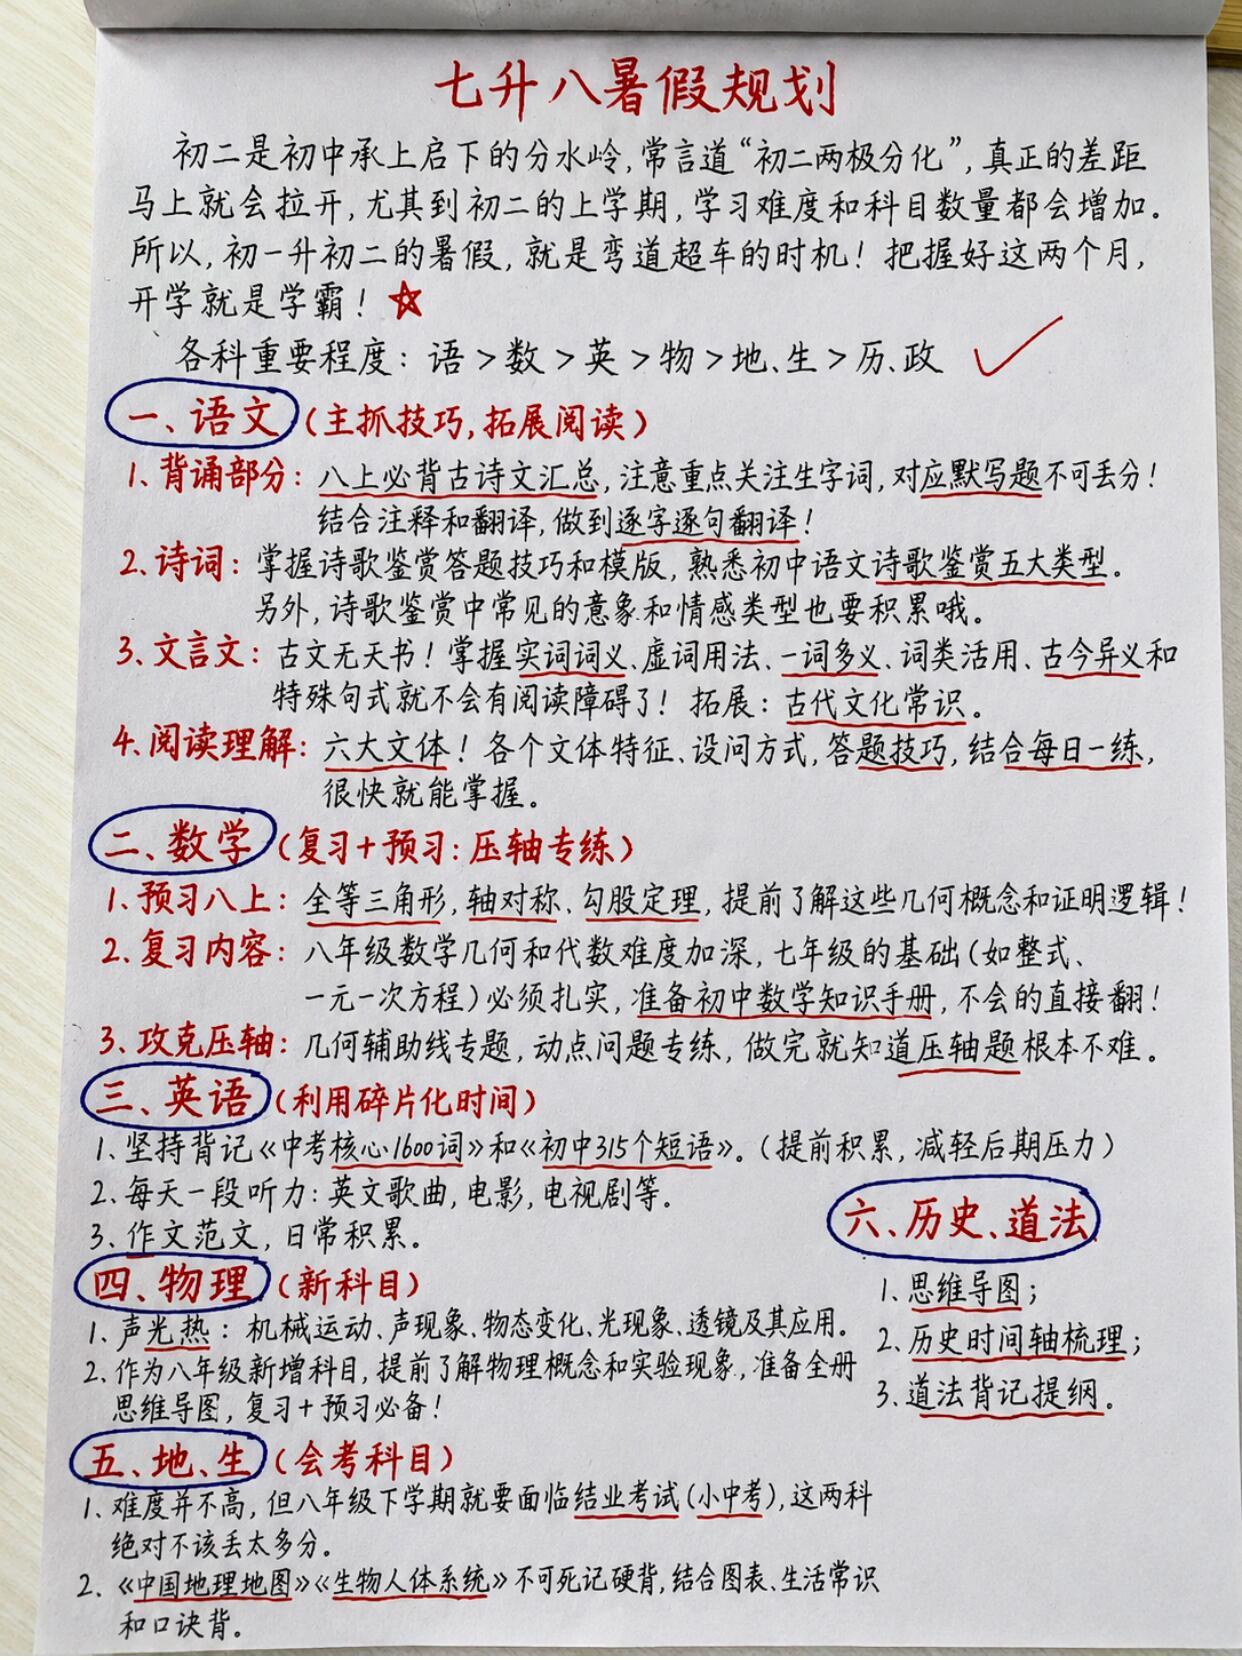 七升八暑假规划
初二是初中承上启下的分水岭,常言道“初二两极分化”,真正的差距
马上就会拉开,尤其到初二的上学期,学习难度和科目数量都会增加。
所以,初一升初二的暑假,就是弯道超车的时机!把握好这两个月,
开学就是学霸!☆
各科重要程度:语>数>英>物>地、生>历、政 ✓
一、语文(主抓技巧,拓展阅读)
1、背诵部分:八上必背古诗文汇总,注意重点关注生字词,对应默写题不可丢分!
结合注释和翻译,做到逐字逐句翻译!
2、诗词:掌握诗歌鉴赏答题技巧和模版,熟悉初中语文诗歌鉴赏五大类型。
另外,诗歌鉴赏中常见的意象和情感类型也要积累哦。
3、文言文:古文无天书!掌握实词词义、虚词用法、一词多义、词类活用、古今异义和
特殊句式就不会有阅读障碍了!拓展:古代文化常识。
4、阅读理解:六大文体!各个文体特征、设问方式,答题技巧,结合每日一练,
很快就能掌握。
二、数学(复习+预习:压轴专练)
1、预习八上:全等三角形,轴对称、勾股定理,提前了解这些几何概念和证明逻辑!
2、复习内容:八年级数学几何和代数难度加深,七年级的基础(如整式、
一元一次方程)必须扎实,准备初中数学知识手册,不会的直接翻!
3、攻克压轴:几何辅助线专题,动点问题专练,做完就知道压轴题根本不难。
三、英语(利用碎片化时间)
1、坚持背记《中考核心1600词》和《初中315个短语》。(提前积累,减轻后期压力)
2、每天一段听力:英文歌曲,电影,电视剧等。
3、作文范文,日常积累。
四、物理(新科目)
1、声光热:机械运动、声现象、物态变化、光现象、透镜及其应用。
2、作为八年级新增科目,提前了解物理概念和实验现象,准备全册
思维导图,复习+预习必备!
五、地、生(会考科目)
1、难度并不高,但八年级下学期就要面临结业考试(小中考),这两科
绝对不该丢太多分。
2、《中国地理地图》《生物人体系统》不可死记硬背,结合图表、生活常识
和口诀背。
六、历史、道法
1、思维导图;
2、历史时间轴梳理;
3、道法背记提纲。